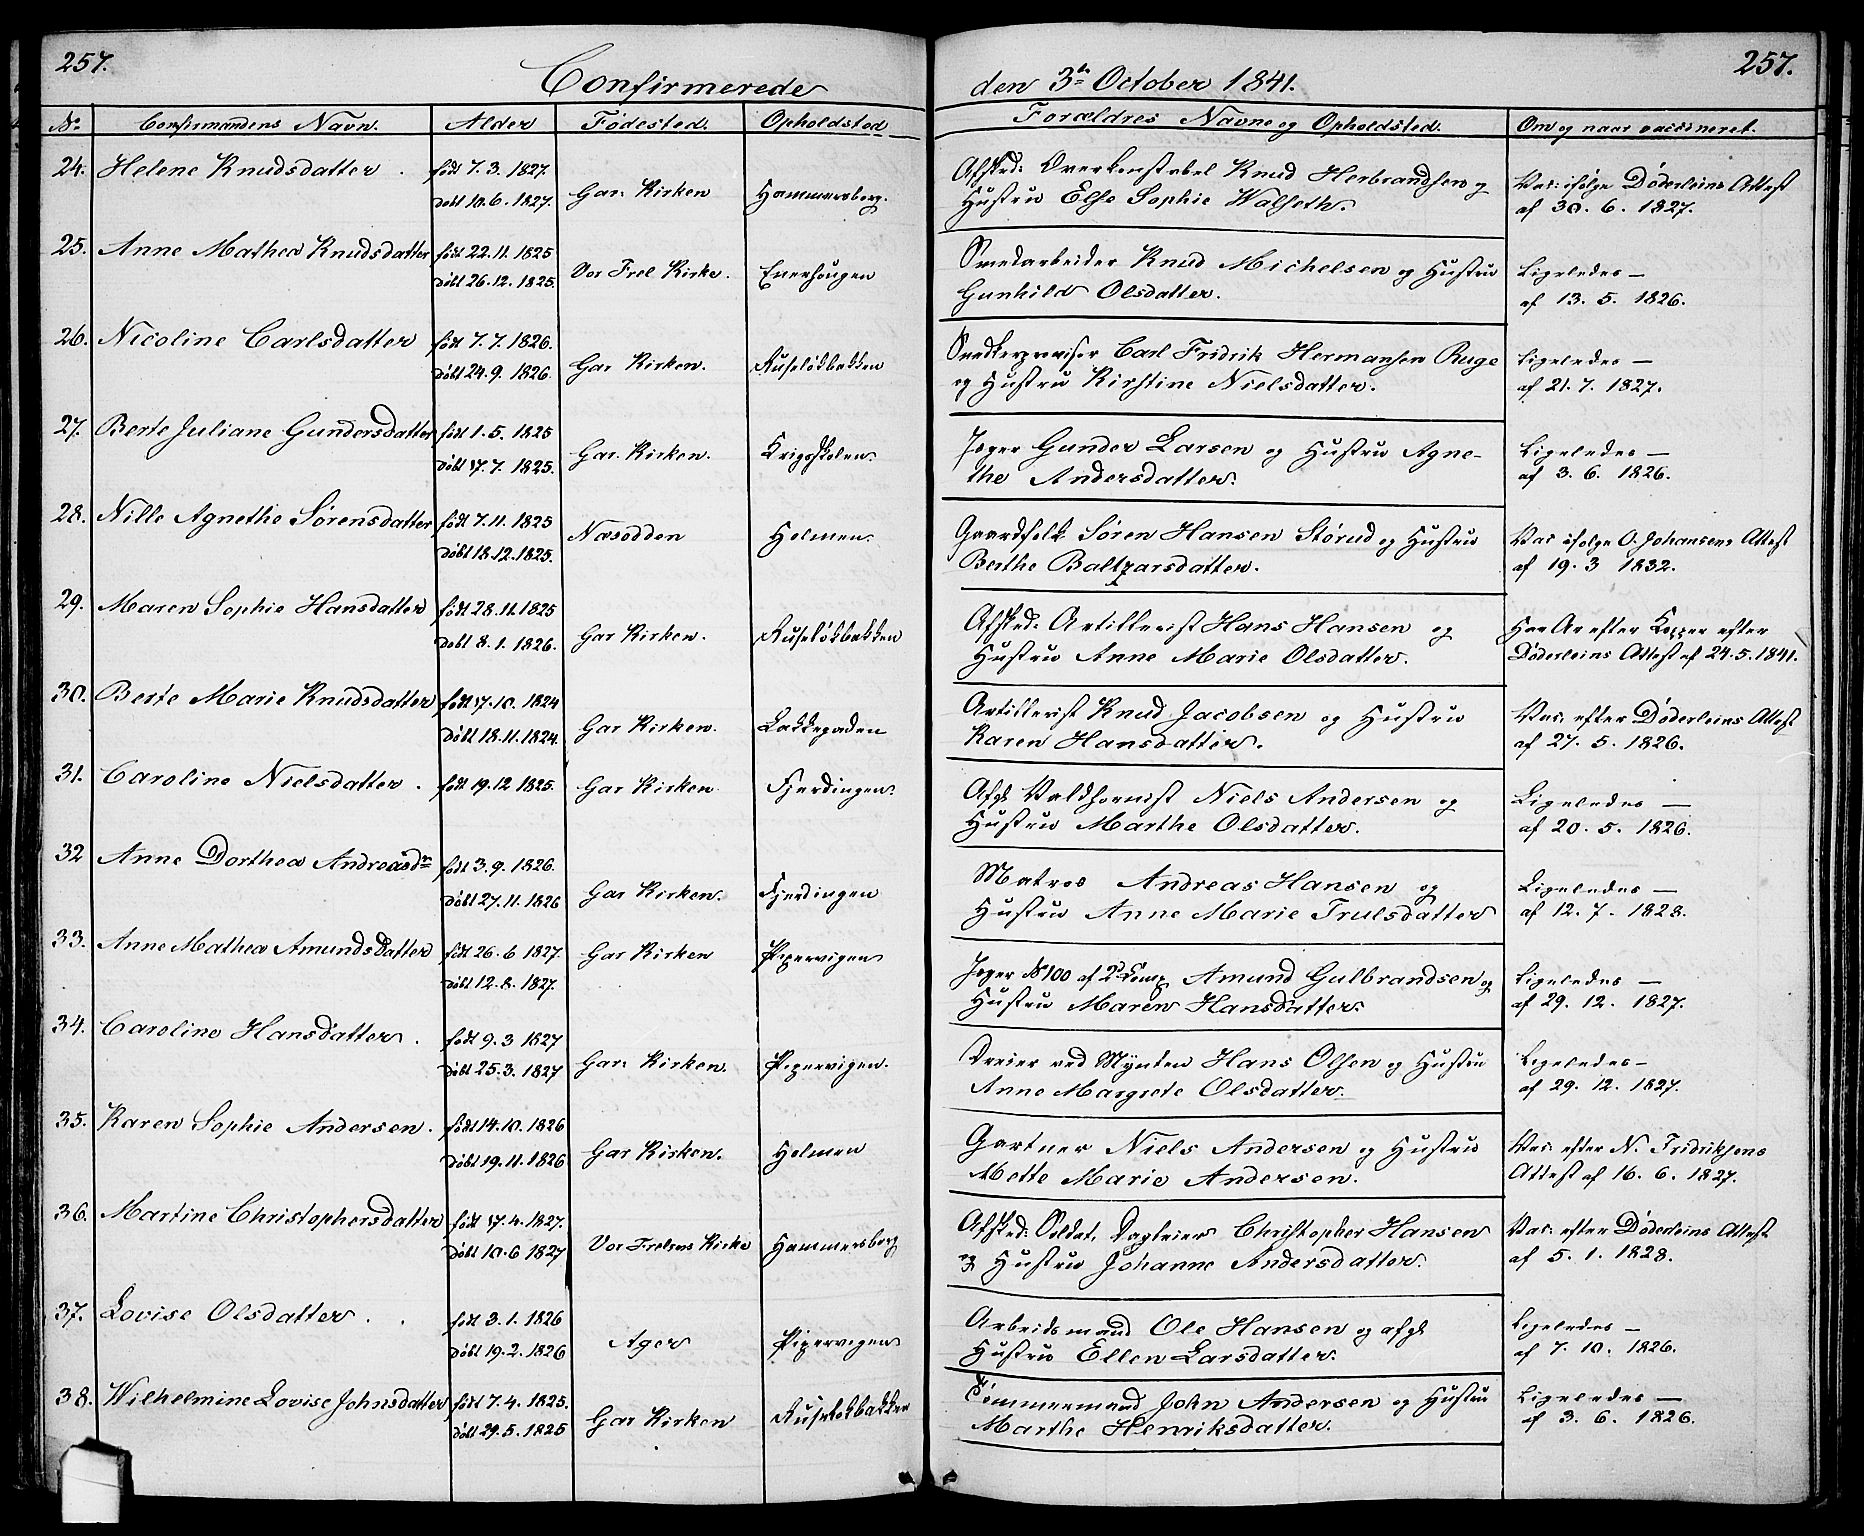 257.
Confirmerede
No Confirmandens Navn. Alder Fødested. Opholdsted
24. Helene Knudsdatter født 7. 3. 1827. døbt 10. 6. 1827. Gar. Kirken Hammersborg.
25. Anne Mathea Knudsdatter født 22. 11. 1825 døbt 26. 12. 1825. Vor Frel Kirke. Enerhougen
26. Nicoline Carlsdatter født 7. 7. 1826. døbt 24. 9. 1826. Gar Kirken. Ruseløkbakken
27. Berte Juliane Gundersdatter født 1. 5. 1825 døbt 17. 7. 1825. Gar. Kirken. Krigsskolen.
28. Nille Agnethe Sørensdatter født 7. 11. 1825 døbt 18. 12. 1825. Næsodden Holmen.
29. Maren Sophie Hansdatter født 28. 11. 1825 døbt 8. 1. 1826. Gar Kirken. Ruseløkbakken
30. Berte Marie Knudsdatter født 17. 10. 1824 døbt 18. 11. 1824. Gar Kirken. Lakkegaden
31. Caroline Nielsdatter. født 19. 12 1825. Gar Kirken Fjerdingen.
32 Anne Dorthea Andreasdr født 3. 9. 1826. døbt 27. 11. 1826 Gar Kirken. Fjerdingen
33. Anne Mathea Amundsdatter født 26. 6 1827. døbt 12. 8. 1827. Gar Kirken Pipervigen
34. Caroline Hansdatter. født 9. 3 1827 døbt 25. 3. 1827 Gar. Kirken. Pipervigen.
35. Karen Sophie Andersen. født 14. 10. 1826 døbt 19. 11. 1826 Gar Kirken. Holmen
36. Martine Christophersdatter født 17. 4. 1827. døbt 10. 6 1827 Vor Frelsers Kirke Hammersborg
37. Lovise Olsdatter. født 3. 1. 1826 døbt 19. 2. 1826 Ager Pipervigen
38. Wilhelmine Lovise Johnsdatter født 7. 4. 1825. døbt 29. 5. 1825 Gar Kirken Ruseløkbakken
257.
den 3die October 1841.
Forældres Navne og Opholdsted. Om og naar vaccineret.
Afsked. Overkonstabel Knud Herbrandsen og
Hustru Else Sophie Walseth.
Vac. ifølge Døderleins Attest
af 30. 6. 1827.
Smedarbeider Knud Michelsen og Hustru
Gunhild Olsdatter.
Ligeledes —
af 13. 5. 1826.
Carl Fridrik Hermansen Ruge
og Hustru Kirstine Nielsdatter.
Ligeledes —
af 21. 7. 1827.
Jæger Gunder Larsen og Hustru Agne-
the Andersdatter.
Ligeledes —
af 3. 6. 1826.
Gaardfolk Søren Hansen Størud og Hustru
Berthe Baltzarsdatter.
Vac ifølge O. Johansens Attest
af 19. 3 1832.
Afsked. Artillerist Hans Hansen og
Hustru Anne Marie Olsdatter.
Har Ar efter Kopper efter
Døderleins Attest af 24. 5. 1841.
Artillerist Knud Jacobsen og Hustru
Karen Hansdatter.
Vac. efter Døderleins Attest
af 27. 5. 1826.
Afsk Valdhornist Niels Andersen og
Hustru Marthe Olsdatter.
Ligeledes —
af 20. 5. 1826.
Matros Andreas Hansen og
Hustru Anne Marie Trulsdatter
Ligeledes —
af 12. 7. 1828.
Jæger No 100 af 2d Comp Amund Gulbrandsen og
Hustru Maren Hansdatter.
Ligeledes —
af 29. 12. 1827.
Dreier ved Mynten Hans Olsen og Hustru
Anne Margrete Olsdatter.
Ligeledes —
af 29. 12. 1827.
Gartner Niels Andersen og Hustru
Mette Marie Andersen.
Vac. efter N. Fridriksens
Attest af 16. 6. 1827.
Afsked. Soldat, Dagleier Christopher Hansen
og Hustru Johanne Andersdatter.
Vac. efter Døderleins Attest
af 5. 1. 1828.
Arbeidsmand Ole Hansen og afgl
Hustru Ellen Larsdatter.
Ligeledes —
af 7. 10. 1826.
Tømmermand John Andersen og Hustru
Marthe Henriksdatter.
Ligeledes —
af 3. 6. 1826.